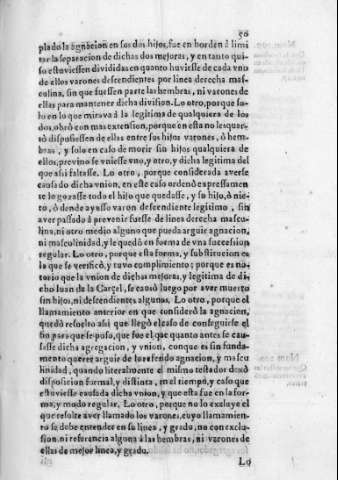 50
plado la agnacion en sos dos hijos, fue en horden à limi
tar la separacion de dichas dos mejoras, y en tanto qui-
so estuviessen divididas en quanto huviesse de cada vno
de ellos varones descendientes por linea derecha mas-
culina, sin que fuessen parte las hembras, ni varones de
ellas para mantener dicha division. Lo otro, porque so-
lo en lo que mirava à la legitima de qualquiera de los
dos, obrò con mas extension, porque en esta no les quar-
tò disposiessen de ellas entre sus hijos varones, ò hem-
bras, y solo en caso de morir sin hijos qualquiera de
ellos, previno se vniesse vno, y otro, y dicha legitima del
que assi faltasse. Lo otro, porque considerada averse
causado dicha vnion, en este caso ordenò expressamen-
te lo gozasse todo el hijo que quedasse, y su hijo, ò nie-
to, ò donde ayasso varon descendiente legitimo, sin
aver passado à prevenir fuesse de linea derecha mascu-
lina, ni otro medio alguno que pueda arguir agnacion,
ni masculinidad, y le quedò en forma de vna succession
regular. Lo otro, porque esta forma, y substitucion es
la que se verificò, y tuvo complimiento; porque es no-
torio que la vnion de dichas mejoras, y legitima de di-
cho Juan de la Carcel, se causò luego por aver muerto
sin hijos, ni descendientes algunos. Lo otro, porque el
llamamiento anterior en que considerò la agnacion,
quedò resoelto assi que llegò el caso de conseguirse el
fin para que se puso, que fue el que quanto antes se cau-
sasse dicha agregacion, y vnion, conque es sin funda-
mento querer arguir de lo referido agnacion, y mascu
linidad, quando literalmente el mismo testador dexò
disposicion formal, y distinta, en el tiempo, y caso que
estuviesse causada dicha vnion, y que esta fue en la for-
ma, y modo regular. Lo otro, porque no lo excluye el
que resulte aver llamado los varones, cuyo llamamien-
to se debe entender en su linea, y grado, no con exclu-
sion, ni referencia alguna à las hembras, ni varones de
ellas de mejor linea, y grado.
Lo